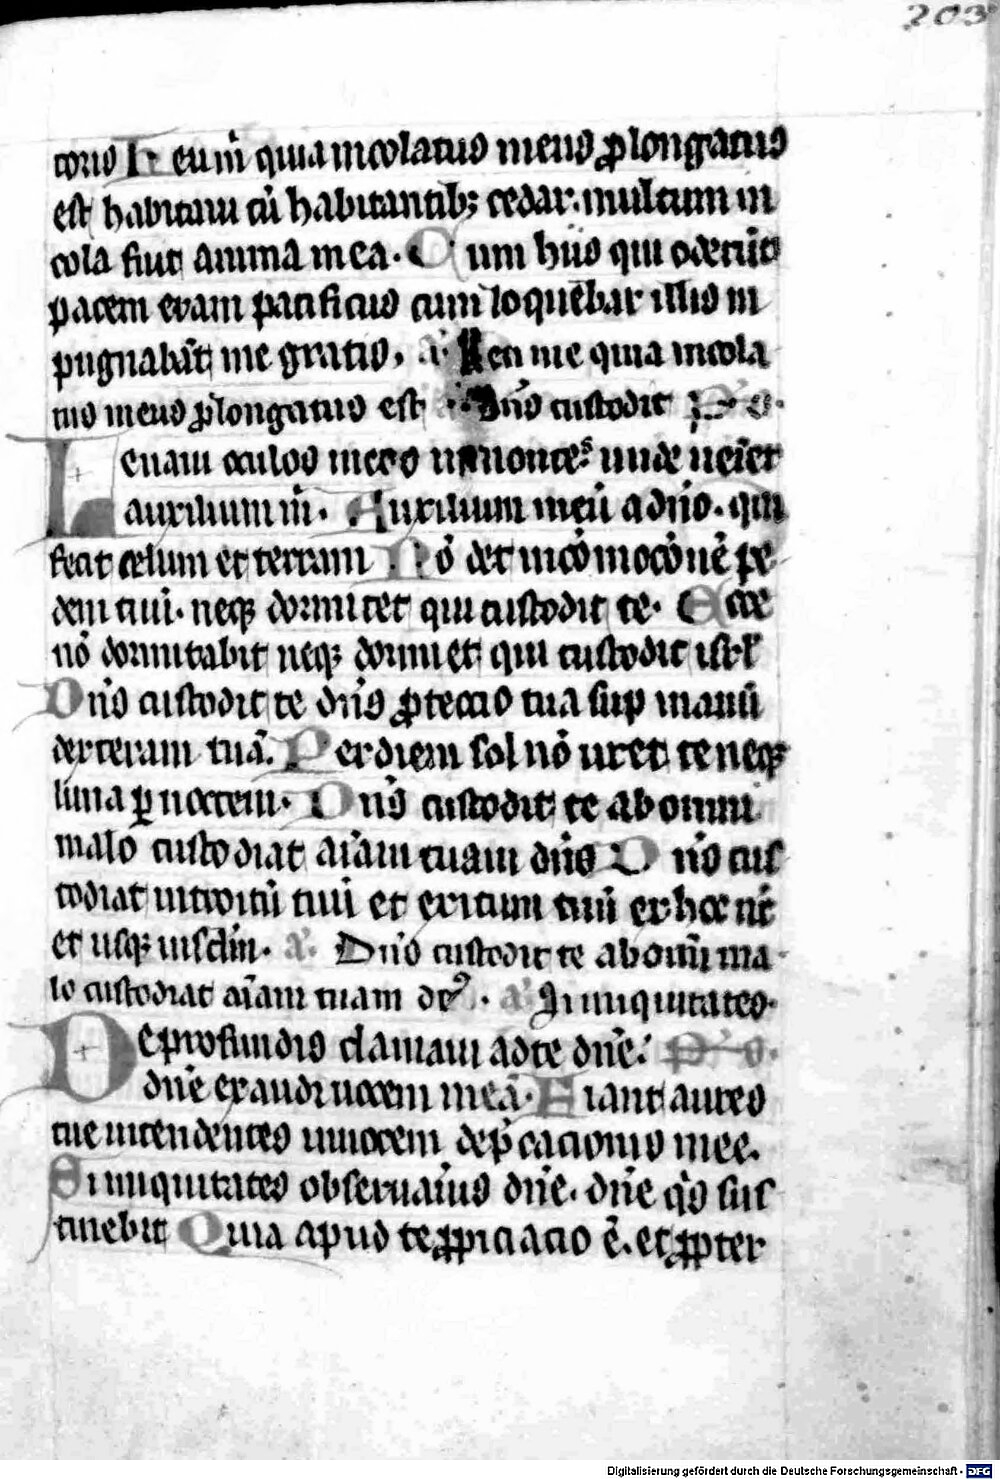 203
torijs Heu m̄ quia incolatus meus ꝓlongatus
est habitaui cū habitantibꝫ cedar. multum in
cola fuit anima mea. Cum hiis qui oderūt
pacem eram pacificus cum loquebar illis in
pugnabāt me gratis, a. Heu me quia incola
tus meus ꝓlongatus est Dn̄s custodit Ps.
Leuaui oculos meos in montes unde ueiet
auxilium m̄. Auxilium meū a dn̄o. qui
fecit celum et terram Nō det in cōmocōnē pe
dem tuū. neqꝫ dormitet qui custodit te. Ecce
nō dormitabit neqꝫ dormiet qui custodit isrl̄
Dn̄s custodit te dn̄s ꝓteccio tua suꝑ manū
dexteram tuā. Per diem sol nō uret te neqꝫ
luna ꝑ noctem. Dn̄s custodit te ab omni
malo custodiat aīam tuam dn̄s Dn̄s cus
todiat introitū tuū et exitum tuū ex hoc nc̄
et usqꝫ in sclm̄. a. Dn̄s custodit te ab om̄i ma
lo custodiat aīam tuam de. a Si iniquitates.
De profundis clamaui ad te dn̄e. Ps.
dn̄e exaudi uocem meā. Fiant aures
tue intendentes in uocem dep̄cacionis mee.
Si iniquitates obseruaūis dn̄e. dn̄e qͥs sus
tinebit Quia apud te ꝓpiciacio ē. et ꝓpter
Digitalisierung gefördert durch die Deutsche Forschungsgemeinschaft - DFG